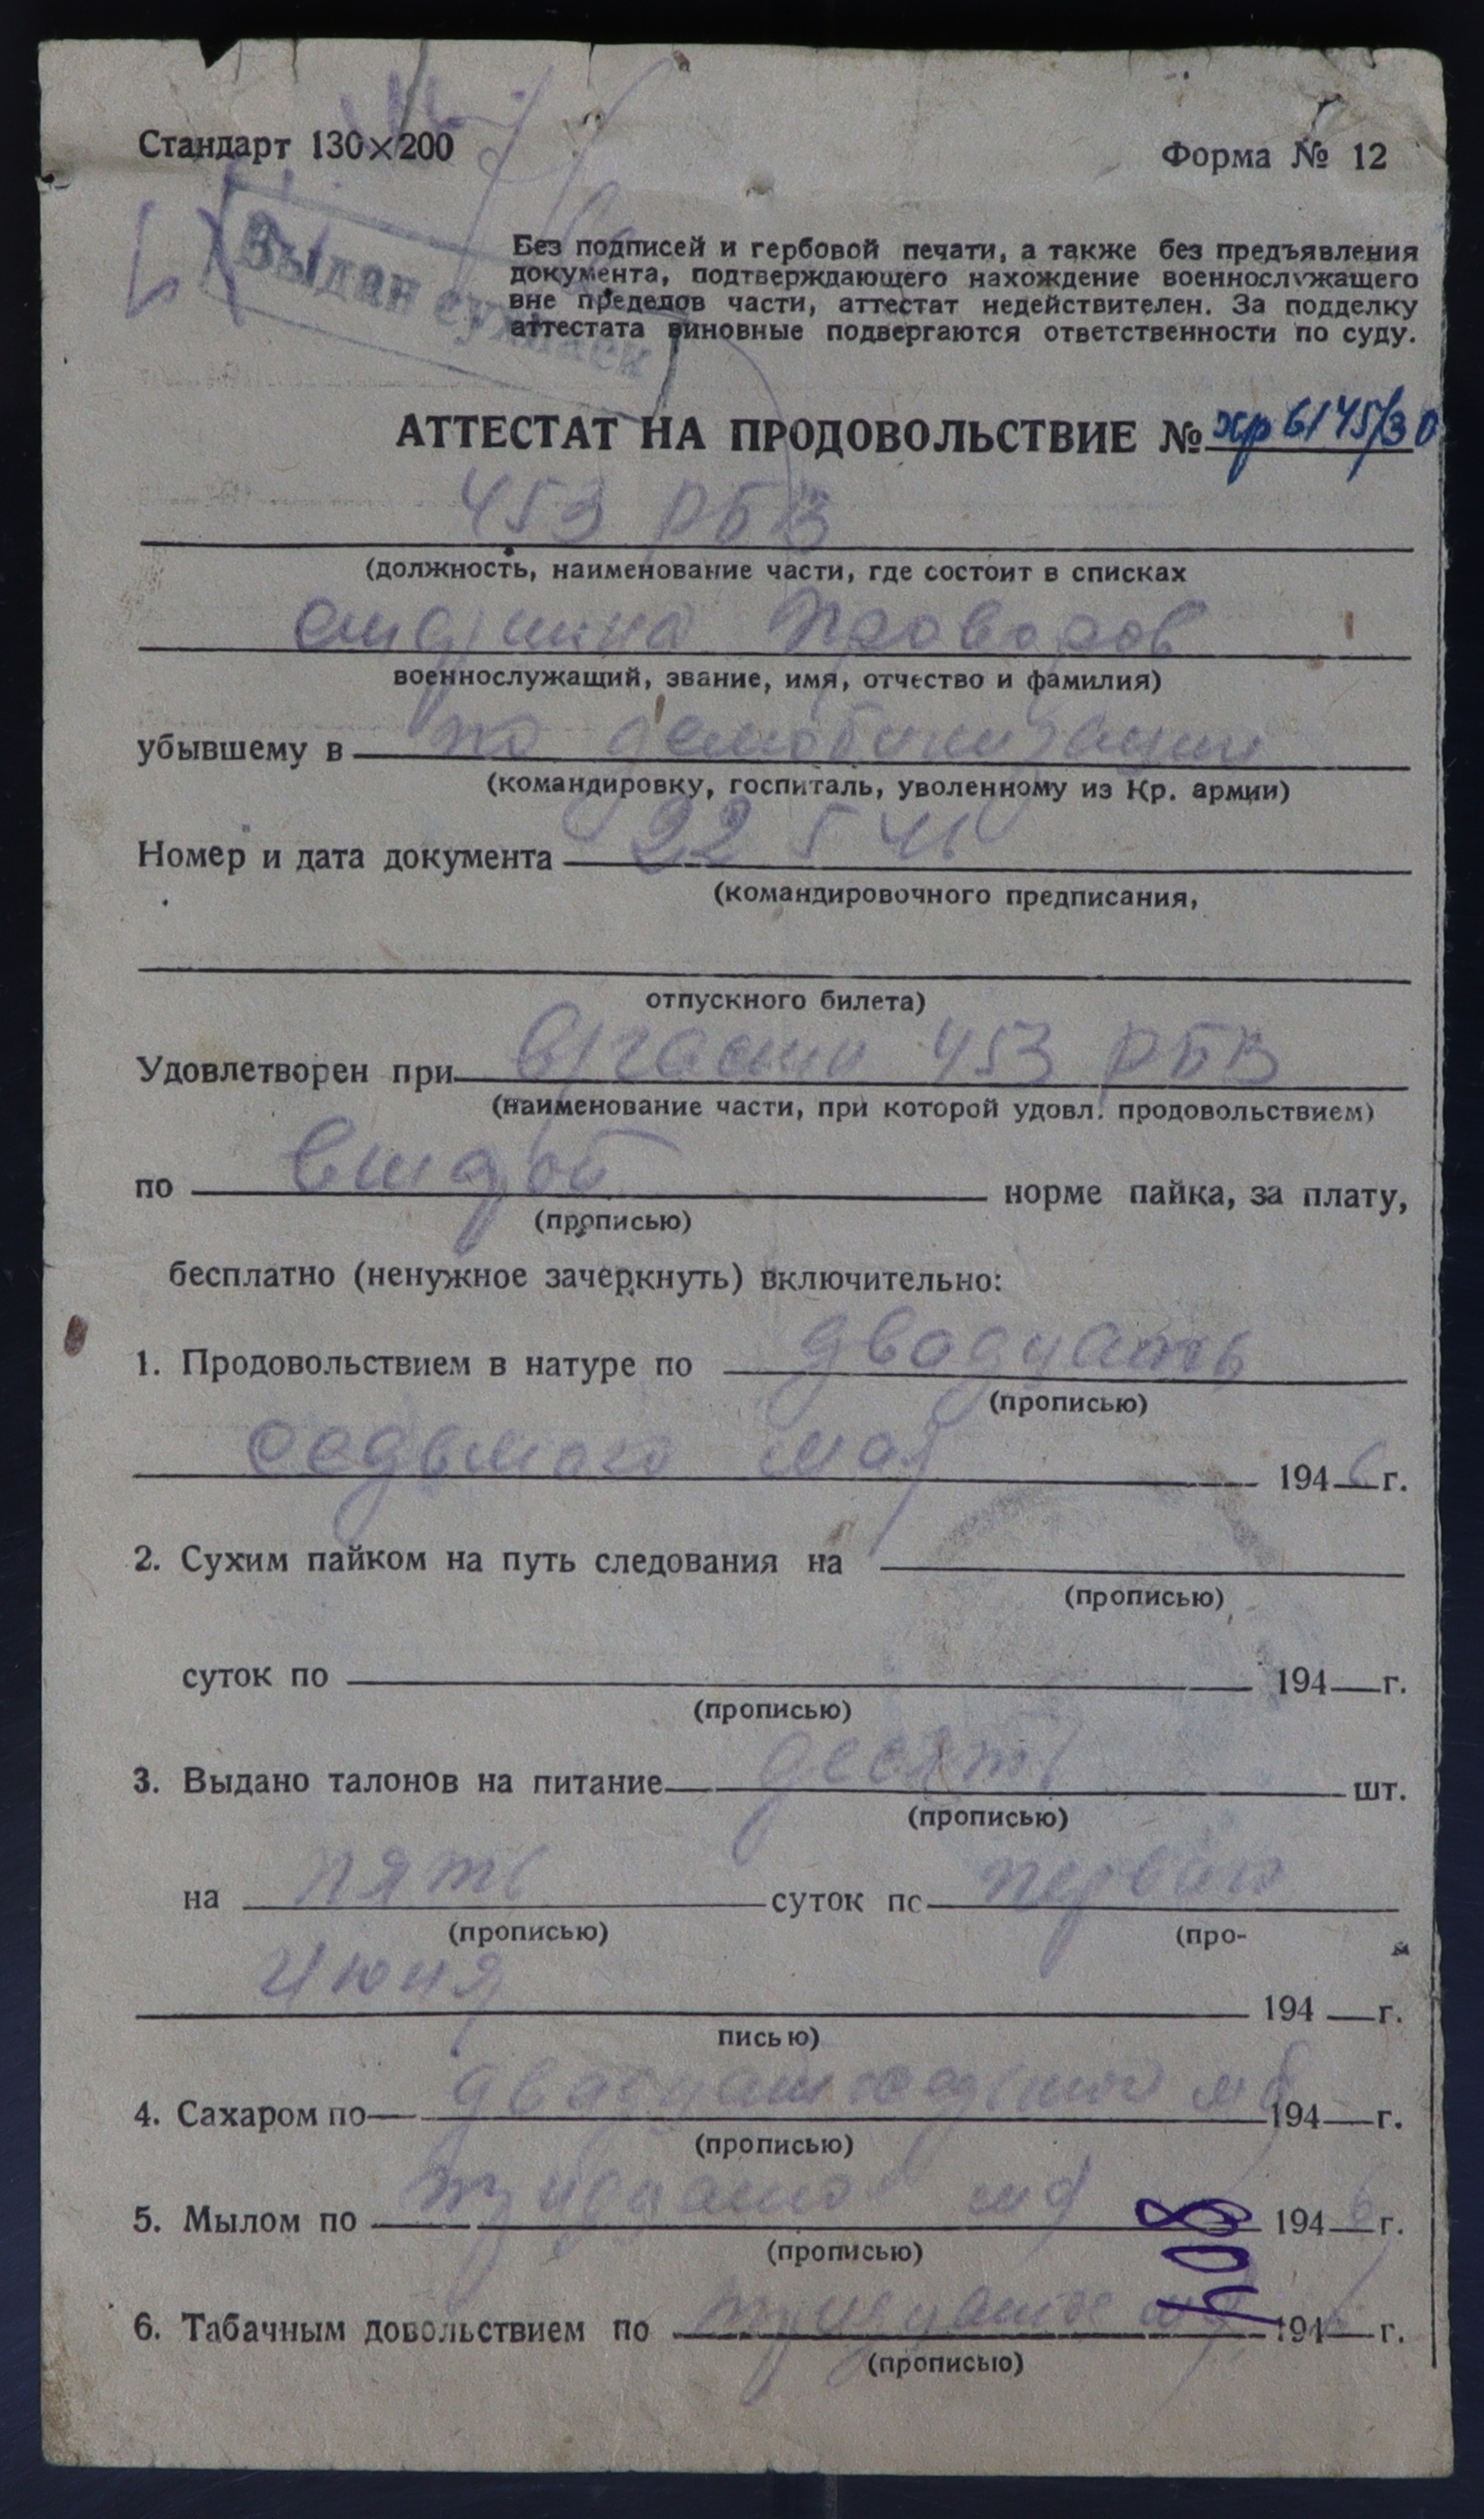 Стандарт 130×200
Форма № 12
Выдан сухпаек
Без подписей и гербовой печати, а также без предъявления
документа, подтверждающего нахождение военнослужащего
вне пределов части, аттестат недействителен. За подделку
аттестата виновные подвергаются ответственности по суду.
АТТЕСТАТ НА ПРОДОВОЛЬСТВИЕ № хр 6145/30
453 РБВ
(должность, наименование части, где состоит в списках
старшина Проворов
военнослужащий, звание, имя, отчество и фамилия)
убывшему в по демобилизации
(командировку, госпиталь, уволенному из Кр. армии)
Номер и дата документа 22 5 46
(командировочного предписания,
отпускного билета)
Удовлетворен при в/части 453 РБВ
(наименование части, при которой удовл. продовольствием)
по норме пайка, за плату,
(прописью)
бесплатно (ненужное зачеркнуть) включительно:
1. Продовольствием в натуре по двадцать
(прописью)
седьмое мая 1946 г.
2. Сухим пайком на путь следования на
(прописью)
суток по 194 г.
(прописью)
3. Выдано талонов на питание десять шт.
(прописью)
на пять суток по первое
(прописью) (про-
июня 194 г.
писью)
4. Сахаром по двадцать седьмое мая 194 г.
(прописью)
5. Мылом по тридцатое мая 1946 г.
(прописью)
6. Табачным довольствием по тридцатое мая 194 г.
(прописью)
408